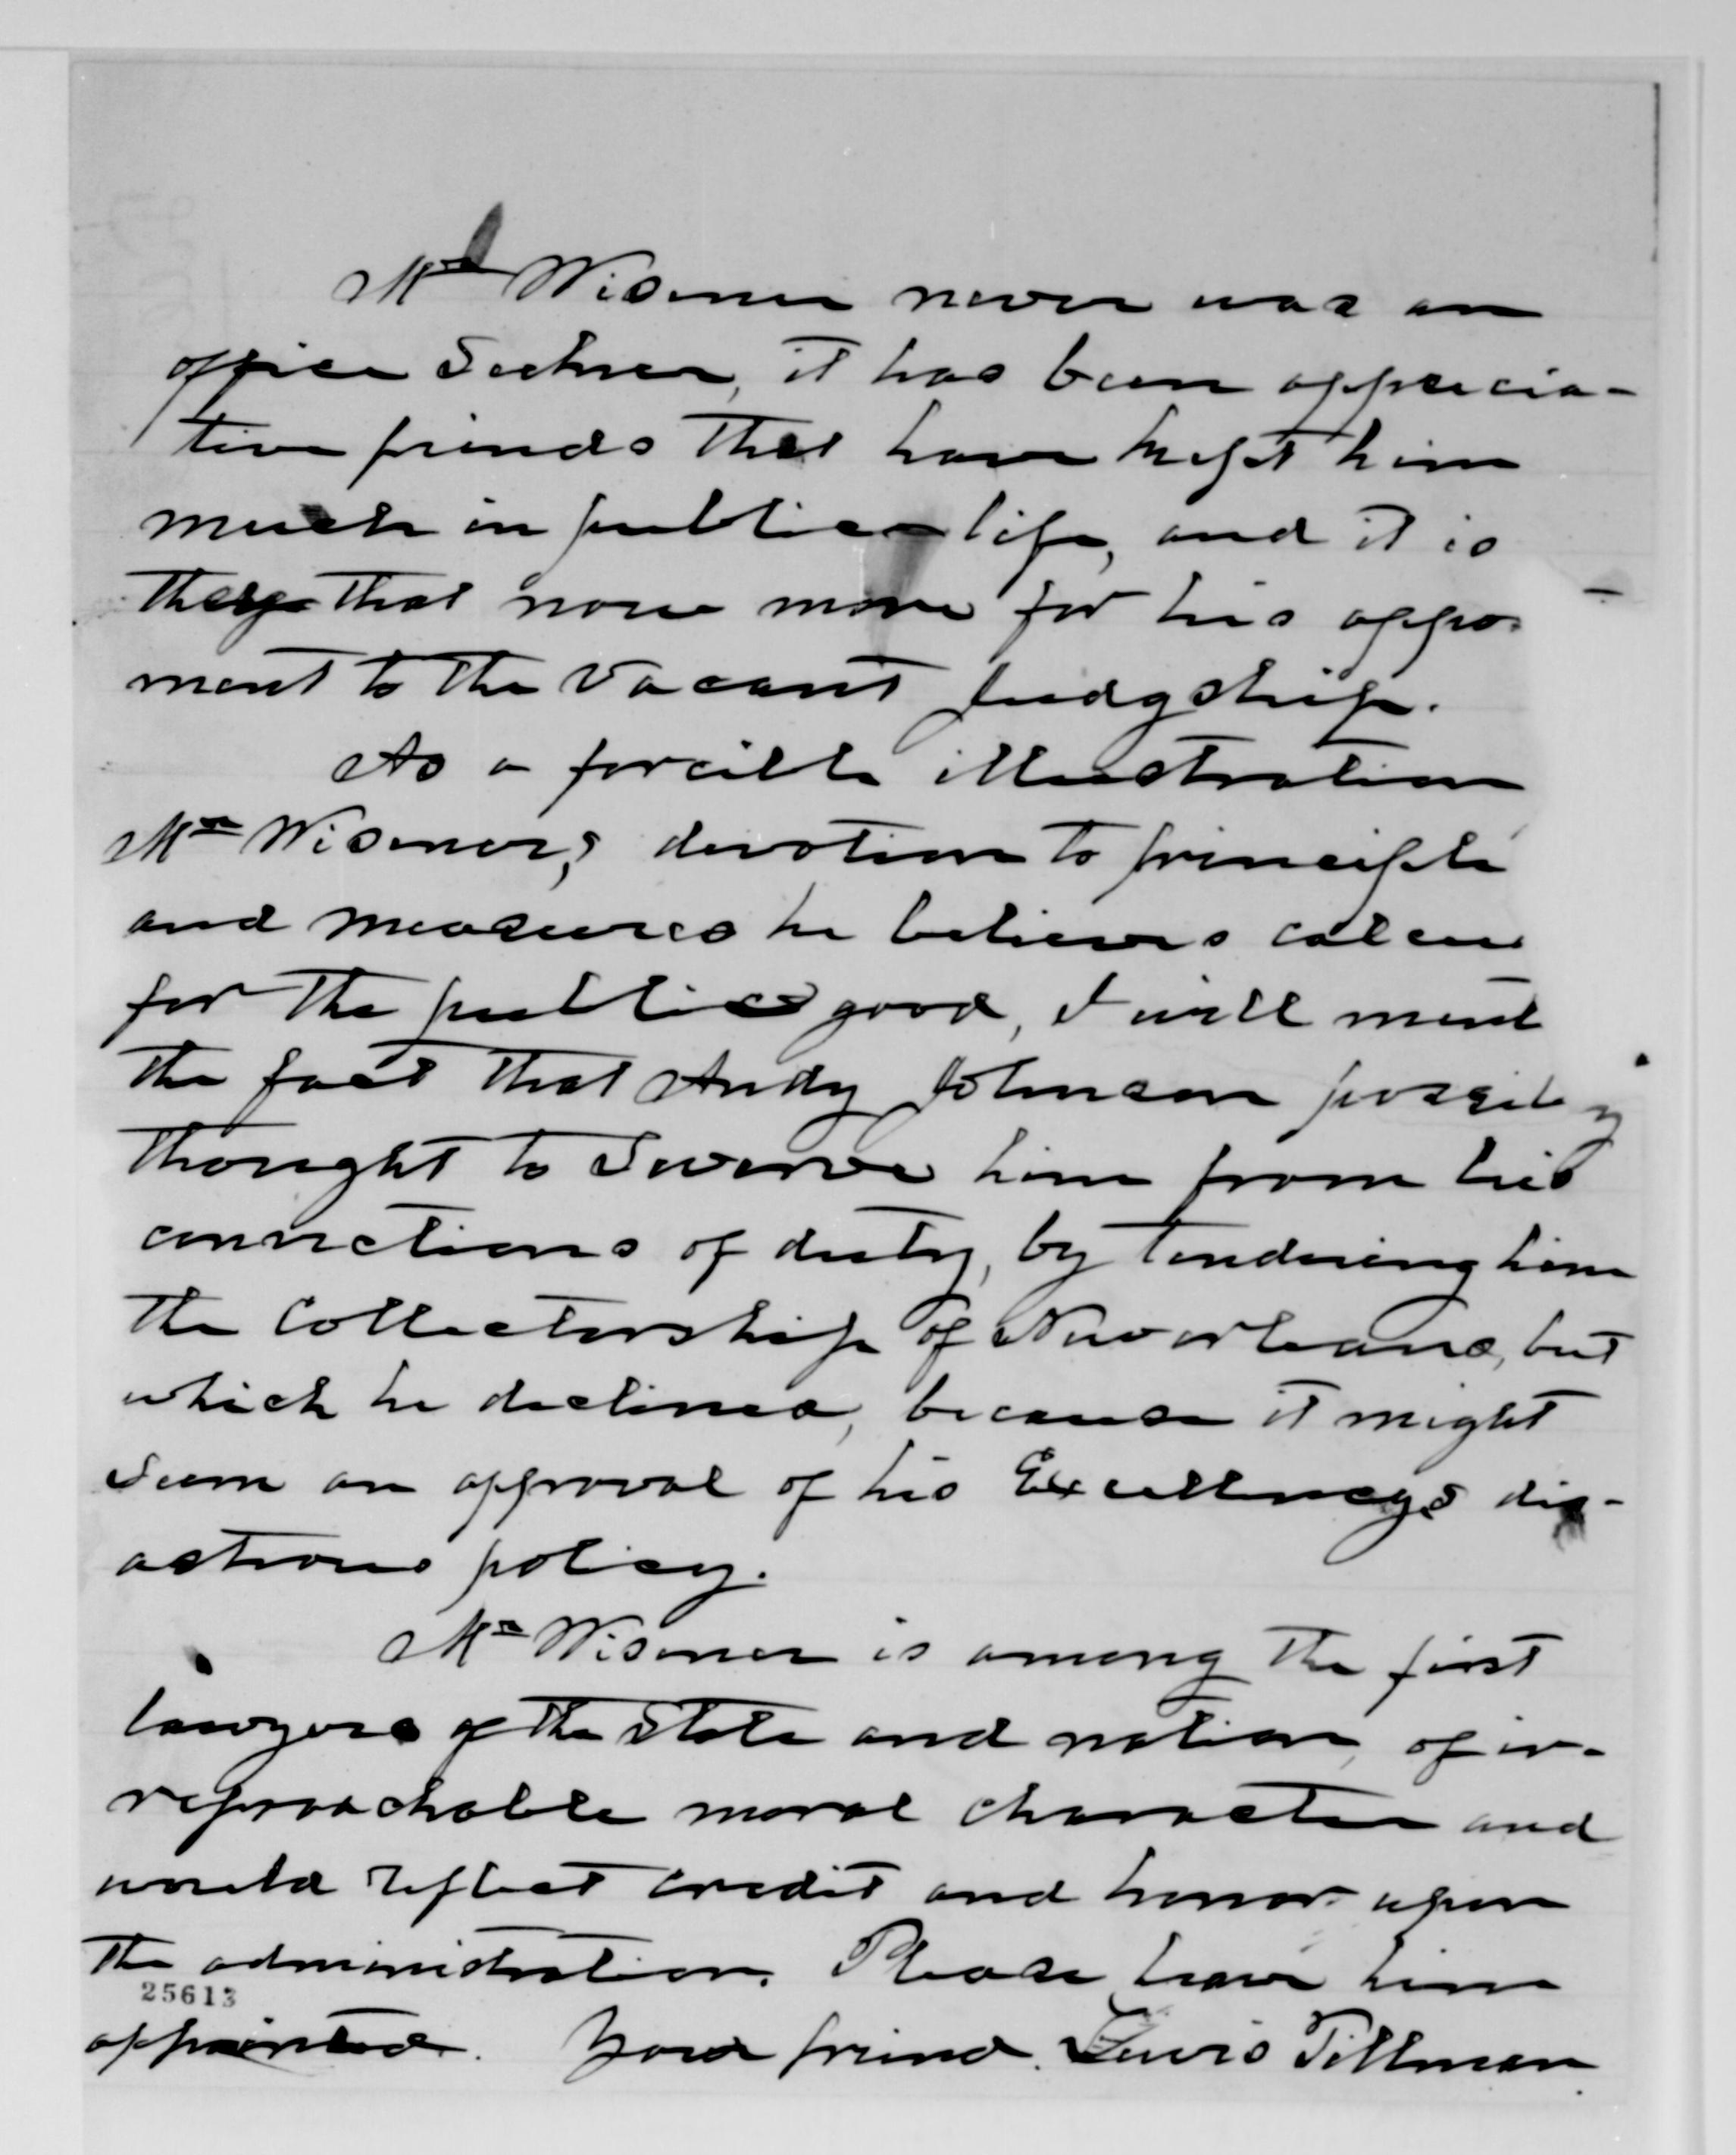 Mr Wisener never was an
office Seeker, it has been apprecia-
tive friends that have kept him
much in public life, and it is
they that now move for his appo
ment to the vacant Judgship.
As a forcible illustration
Mr Wisener,s devotion to principle
and measures he believes calcu
for the public good, I will ment
the fact that Andy Johnson possibly
thought to Swerve him from his
convictions of duty, by tendering him
the Collectorship of New orleans, but
which he declined, because it might
Seem an approval of his Excellencys dis-
astrous policy.
Mr Wisener is among the first
lawyers of the State and nation, of ir-
reproachable moral character and
would reflect credit and honor upon
the administration. Please have him
25613
appointed. Your friend. Lewis Tillman